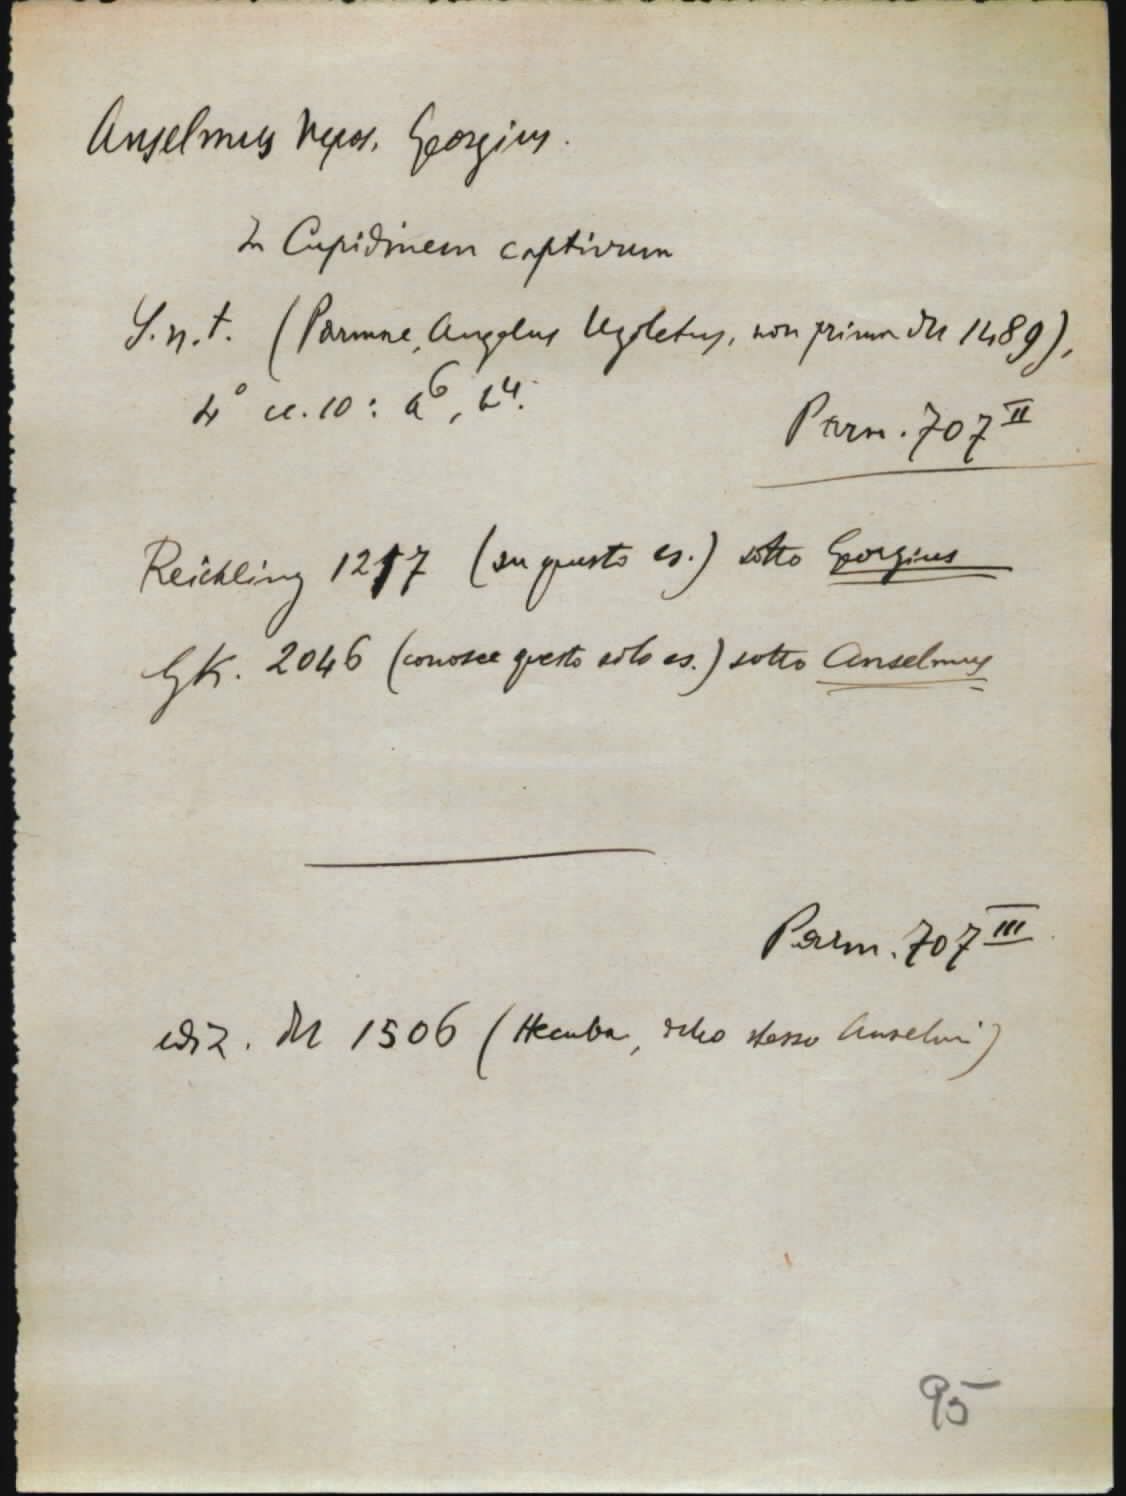 Anselmus Nepos, Georgius.
In Cupidinem captivum
S.n.t. (Parmae, Angelus Ugoletus, non prima del 1489),
4° cc. 10: a⁶, b⁴.
Parm. 707 II
Reichling 1217 (su questo es.) sotto Georgius
GK. 2046 (conosce questo solo es.) sotto Anselmus
Parm. 707 III
ediz. del 1506 (Hecuba, dello stesso Anselmi)
95